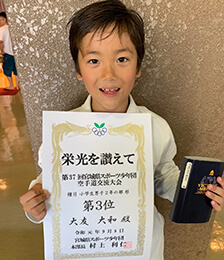 栄光を讃えて
第37回宮城県スポーツ少年団
空手道交流大会
種目 小学生男子2年の部 形
第3位
大友 大和 殿
令和元年9月8日
宮城県スポーツ少年団
本部長 村上 利仁